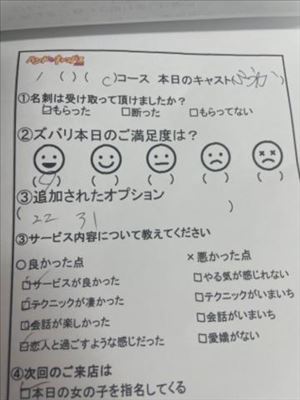 / ( ) ( C )コース 本日のキャスト(
①名刺は受け取って頂けましたか?
□もらった □断った □もらってない
②ズバリ本日のご満足度は?
( ) ( ) ( ) ( ) ( )
③追加されたオプション
( 22 31 )
③サービス内容について教えてください
○良かった点 ×悪かった点
☑サービスが良かった □やる気が感じれない
☑テクニックが凄かった □テクニックがいまいち
☑会話が楽しかった □会話がいまいち
☑恋人と過ごすような感じだった □愛嬌がない
④次回のご来店は
□本日の女の子を指名してくる